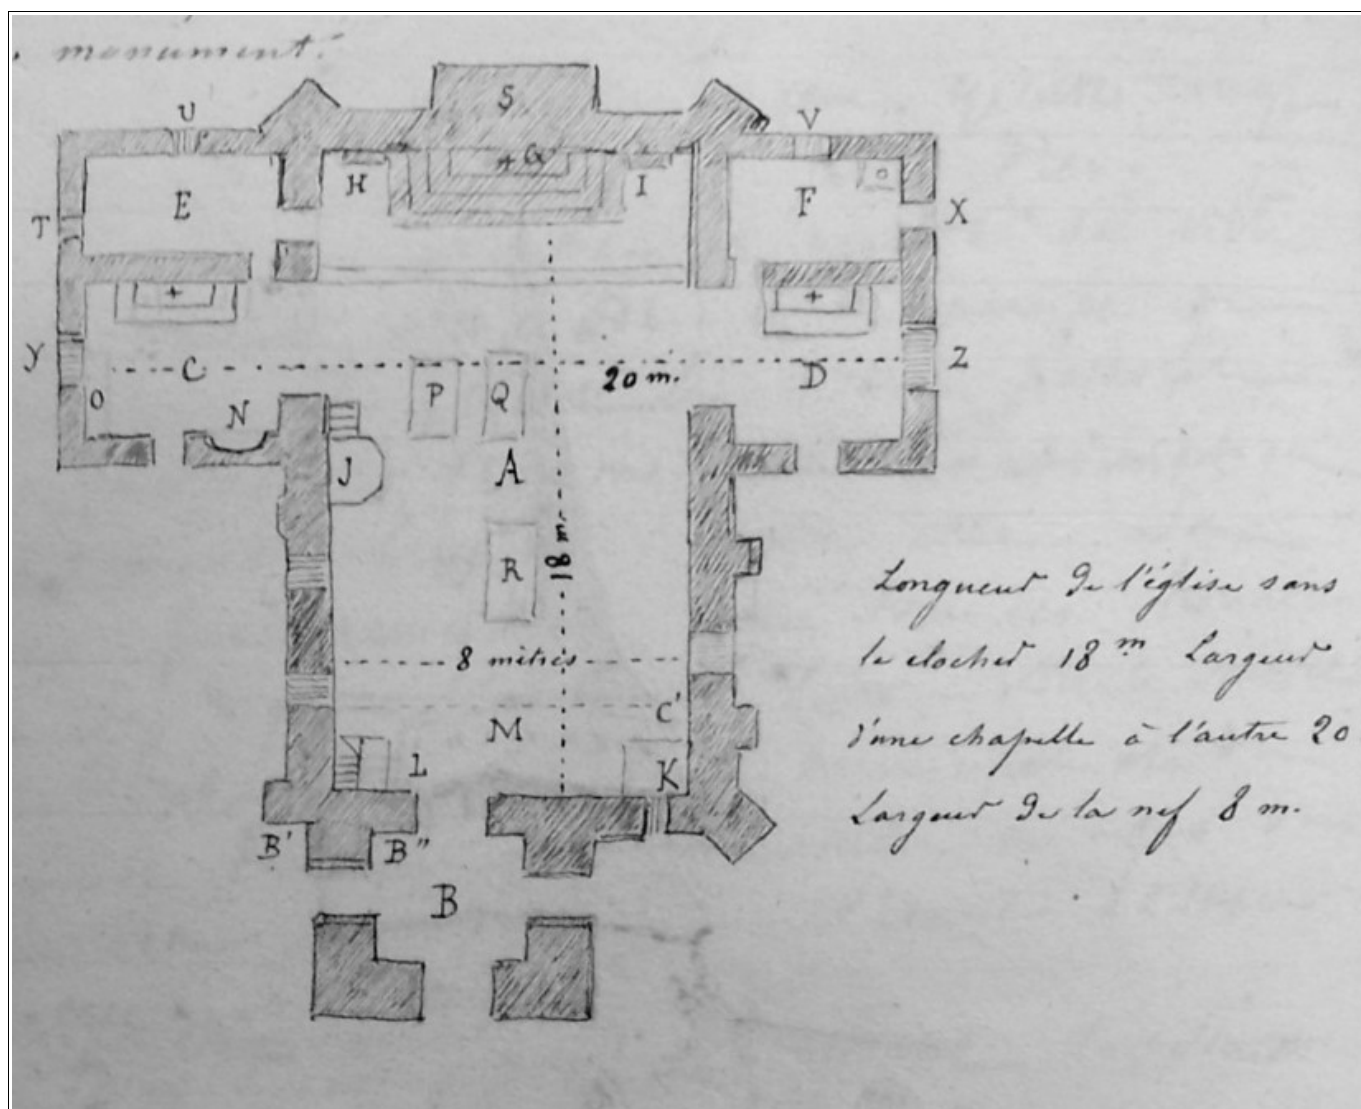 monument.
S
U
V
G
H
I
E
F
T
X
Y
C
20 m.
D
Z
O
N
P
Q
J
A
R
18 m
8 mètres
C'
M
L
K
B'
B"
B
Longueur de l'église sans
le clocher 18 m Largeur
d'une chapelle à l'autre 20
Largeur de la nef 8 m.